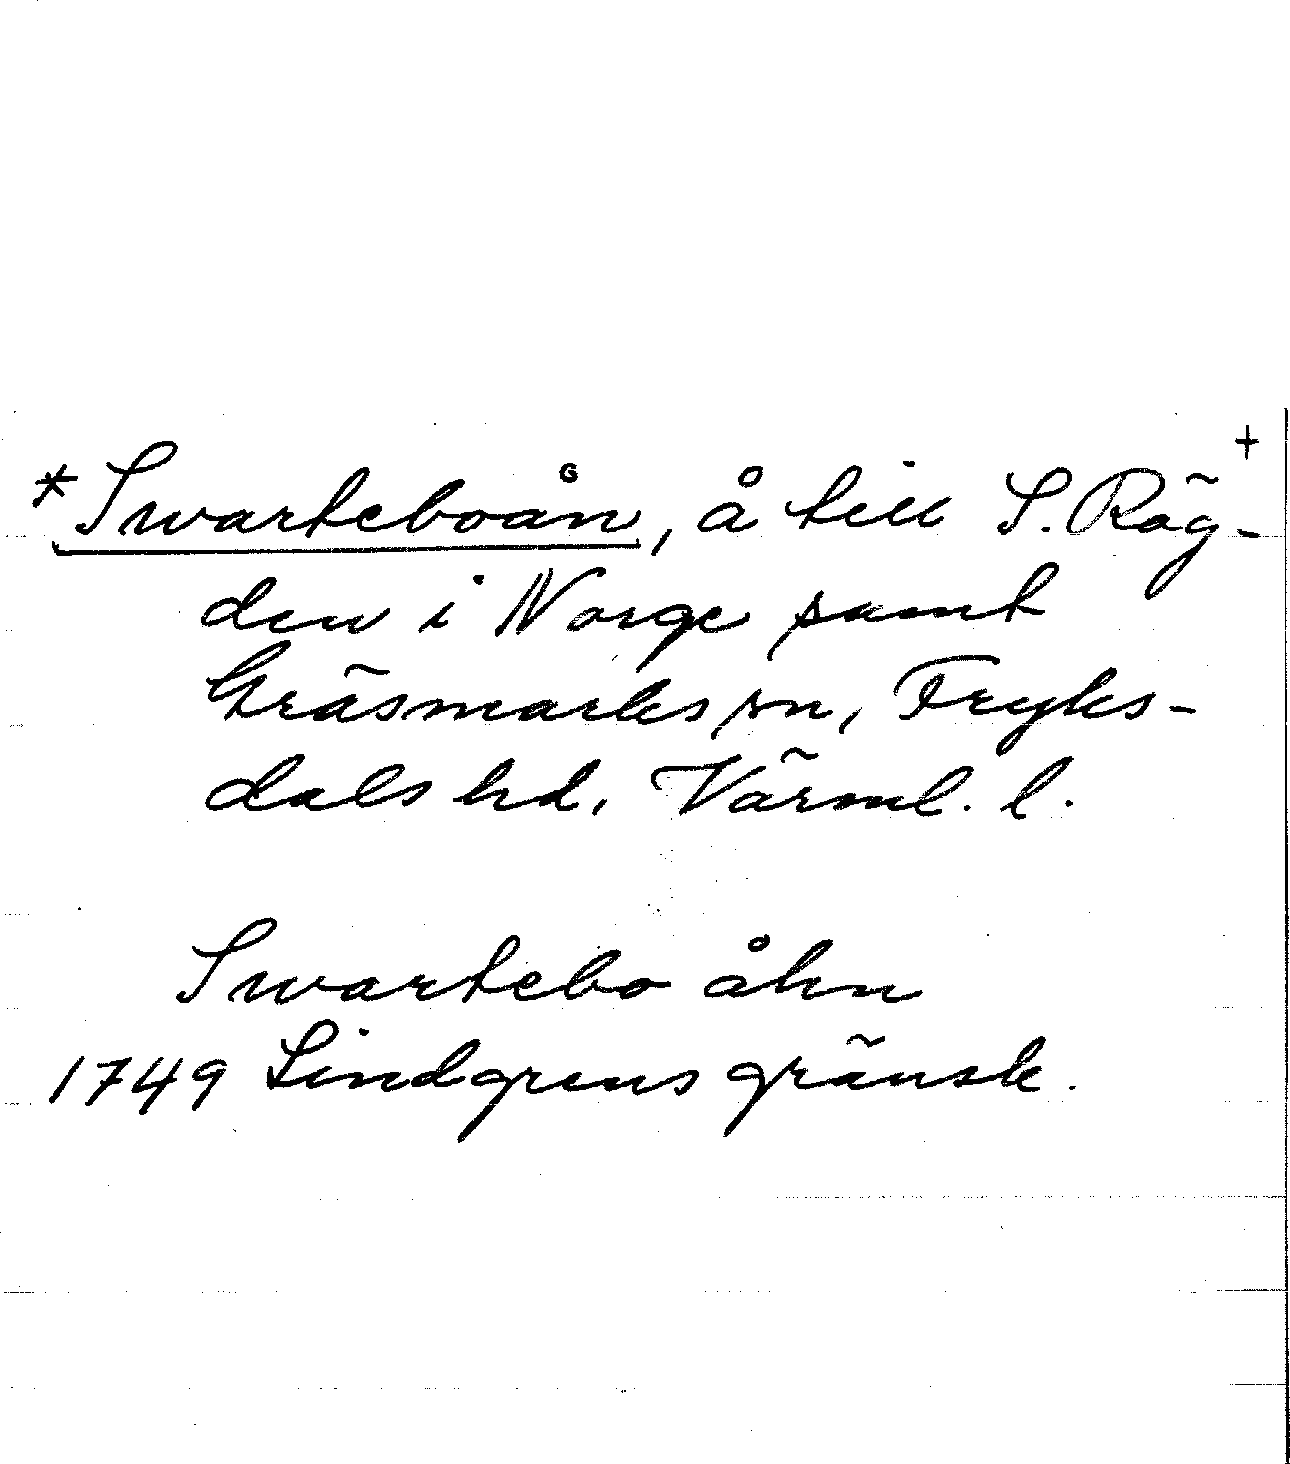 +
*Swarteboån, å till S. Räg-
den i Norge samt
Gräsmarks sn, Fryks-
dals hd, Värml. l.
Swartebo åhn
1749 Lindgrens gränsk.